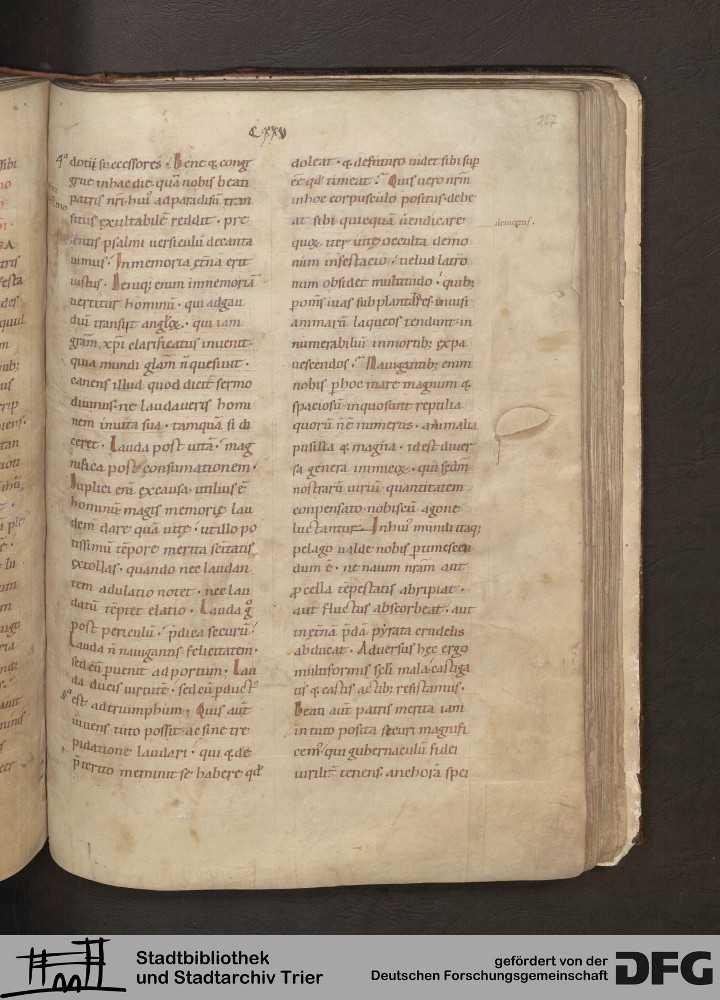 CXXV
267
dotii successores · Bene q; cong
grue in hac die · quā nobis beati
patris nr̄i · hui᾽ ad paradisū tran
situs exultabilē reddit · pre
sentis psalmi uersiculū decanta
uimus · In memoria et̄na erit
iustus · Deniq; enim in memoriā
uertitur hominū · qui ad gau
diū transiit angl̄oꝝ · qui iam
gram̄ xp̄i clarificatus inuenit ·
quia mundi glam̄ n̄ quesiuit ·
canens illud quod dicit sermo
diuinus · ne laudaueris homi
nem in uita sua · tamquā si di
ceret · Lauda post uitā · mag
nifica post consumationem ·
Duplici eni ex causa utilius ē
hominū magis memorie lau
dem dare quā uitę · ut illo po
tissimū tēpore merita sc̄itatis
extollas · quando nec laudan
tem adulatio notet · nec lau
datū tēptet elatio · Lauda g᾽
post periculū · p̄dica securū ·
Lauda n̄ nauigantis felicitatem ·
sed cū puenit ad portum · Lau
da ducis uirtutē · sed cū pduct᾽
est ad triumphum · Quis aut̄
uiuens tuto possit ac sine tre
pidatione laudari · qui q; de
p̄terito meminit se habere qd̄
doleat · q; de futuro uidet sibi sup
eē qd̄ timeat · Quis uero nr̄m
in hoc corpusculo positus debe
at sibi quicquā uendicare
quę iter uitę occulta demo
demetius.
num infestacio · uelud latro
num obsidet multitudo · quib;
pom̄s uias sub plantares inuisi
animarū laqueos tendunt in
numerabiliū in mortib; expa
uescendos · Nauigantib; enim
nobis p hoc mare magnum q;
spaciosū in quo sunt reptilia
quorū n̄ ē numerus · animalia
pusilla q; magna · id est diuer
sa genera inimicoꝝ · qui scdm̄
nostrarū uiriū quantitatem
conpensato nobiscū agone
luctantur · In hui᾽ mundi itaq;
pelago ualde nobis ptimescen
dum ē · ne nauim nr̄am aut
pcella tēpestatis abripiat ·
aut fluctus absorbeat · aut
in et̄nā p̄dā pyrata crudelis
abducat · Aduersus hec ergo
multiformis scl̄i mala castiga
tis q; castis actib; resistamus ·
Beati aut̄ patris merita iam
in tuto posita securi magnifi
cem᾽ qui gubernaculū fidei
uirilit̄ tenens · anchorā spei
Stadtbibliothek
und Stadtarchiv Trier
gefördert von der
Deutschen Forschungsgemeinschaft
DFG